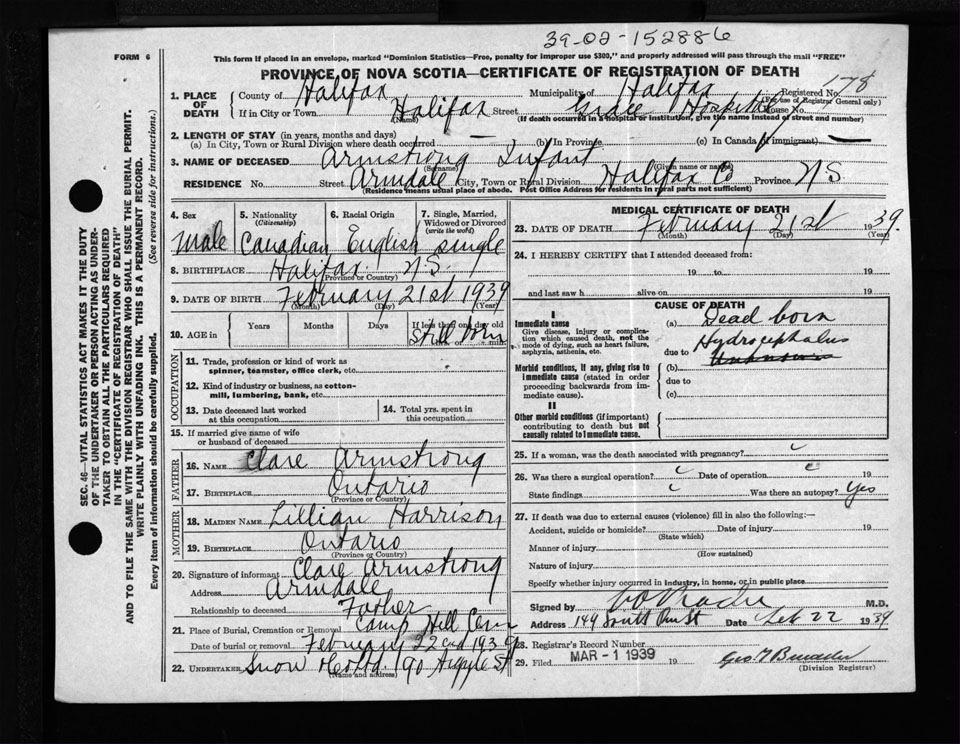 39-02-152886
FORM 6
This form if placed in an envelope, marked "Dominion Statistics—Free, penalty for improper use $300," and properly addressed will pass through the mail "FREE"
PROVINCE OF NOVA SCOTIA—CERTIFICATE OF REGISTRATION OF DEATH
1. PLACE OF DEATH
County of Halifax Municipality of Halifax Registered No. 178
(For use of Registrar General only)
If in City or Town Halifax Street Grace Hospital House No.
(Name) (If death occurred in a hospital or institution, give the name instead of street and number)
2. LENGTH OF STAY (in years, months and days)
(a) In City, Town or Rural Division where death occurred — (b) In Province (c) In Canada (if immigrant) —
3. NAME OF DECEASED Armstrong Infant
(Surname) (Given name or names)
RESIDENCE No. Street Armdale City, Town or Rural Division Halifax Co Province N S
(Residence means usual place of abode. Post Office Address for residents in rural parts not sufficient)
4. Sex 5. Nationality (Citizenship) 6. Racial Origin 7. Single, Married, Widowed or Divorced (write the word)
Male Canadian English single
8. BIRTHPLACE Halifax N.S.
(Province or Country)
9. DATE OF BIRTH February 21st 1939
(Month) (Day) (Year)
10. AGE in Years Months Days If less than one day old
Still born
hrs. min.
OCCUPATION
11. Trade, profession or kind of work as spinner, teamster, office clerk, etc.
12. Kind of industry or business, as cotton-mill, lumbering, bank, etc.
13. Date deceased last worked at this occupation
14. Total yrs. spent in this occupation
15. If married give name of wife or husband of deceased
FATHER
16. NAME Clare Armstrong
17. BIRTHPLACE Ontario
(Province or Country)
MOTHER
18. MAIDEN NAME Lillian Harrison
19. BIRTHPLACE Ontario
(Province or Country)
20. Signature of informant Clare Armstrong
Address Armdale
Relationship to deceased Father
21. Place of Burial, Cremation or Removal Camp Hill Cem
Date of burial or removal February 22nd 1939
22. UNDERTAKER Snow & Co Ltd. 90 Argyle St
(Name and address)
MEDICAL CERTIFICATE OF DEATH
23. DATE OF DEATH February 21st 1939.
(Month) (Day) (Year)
24. I HEREBY CERTIFY that I attended deceased from:
19 to 19
and last saw h alive on 19
CAUSE OF DEATH
I
Immediate cause
Give disease, injury or complication which caused death, not the mode of dying, such as heart failure, asphyxia, asthenia, etc.
(a) Dead born
Hydrocephalus
due to
Morbid conditions, if any, giving rise to immediate cause (stated in order proceeding backwards from immediate cause).
(b) Unknown
due to
(c)
II
Other morbid conditions (if important) contributing to death but not causally related to immediate cause.
25. If a woman, was the death associated with pregnancy?
26. Was there a surgical operation? Date of operation 19
State findings Was there an autopsy? Yes
27. If death was due to external causes (violence) fill in also the following:—
Accident, suicide or homicide? Date of injury 19
(State which)
Manner of injury
(How sustained)
Nature of injury
Specify whether injury occurred in industry, in home, or in public place
Signed by M.D.
Address 149 South Park St Date Feb 22 1939
28. Registrar's Record Number
29. Filed MAR - 1 1939 19
(Division Registrar)
SEC. 46—VITAL STATISTICS ACT MAKES IT THE DUTY
OF THE UNDERTAKER OR PERSON ACTING AS UNDER-
TAKER TO OBTAIN ALL THE PARTICULARS REQUIRED
IN THE "CERTIFICATE OF REGISTRATION OF DEATH"
AND TO FILE THE SAME WITH THE DIVISION REGISTRAR WHO SHALL ISSUE THE BURIAL PERMIT.
WRITE PLAINLY WITH UNFADING INK. THIS IS A PERMANENT RECORD.
Every item of information should be carefully supplied. (See reverse side for instructions.)